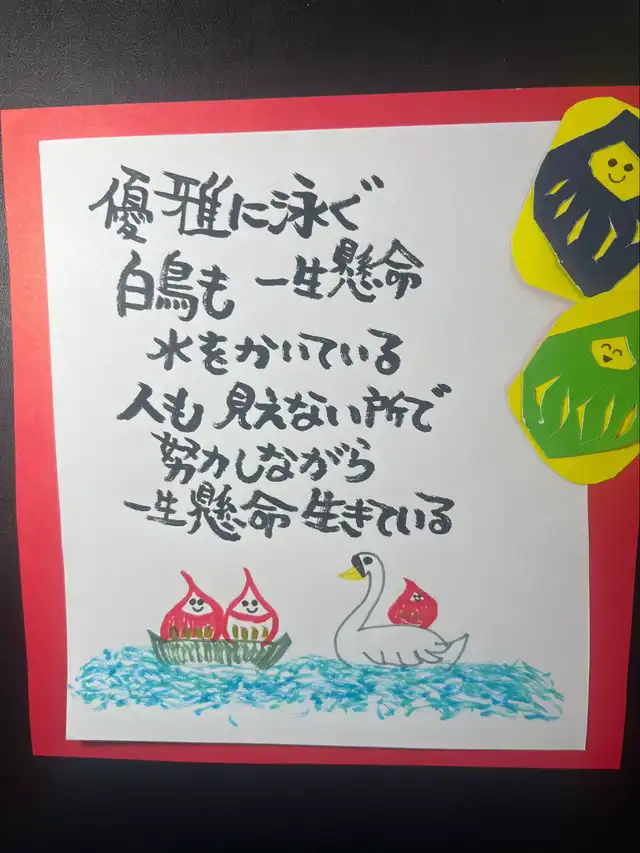 優雅に泳ぐ
白鳥も 一生懸命
水をかいている
人も 見えない所で
努力しながら
一生懸命 生きている